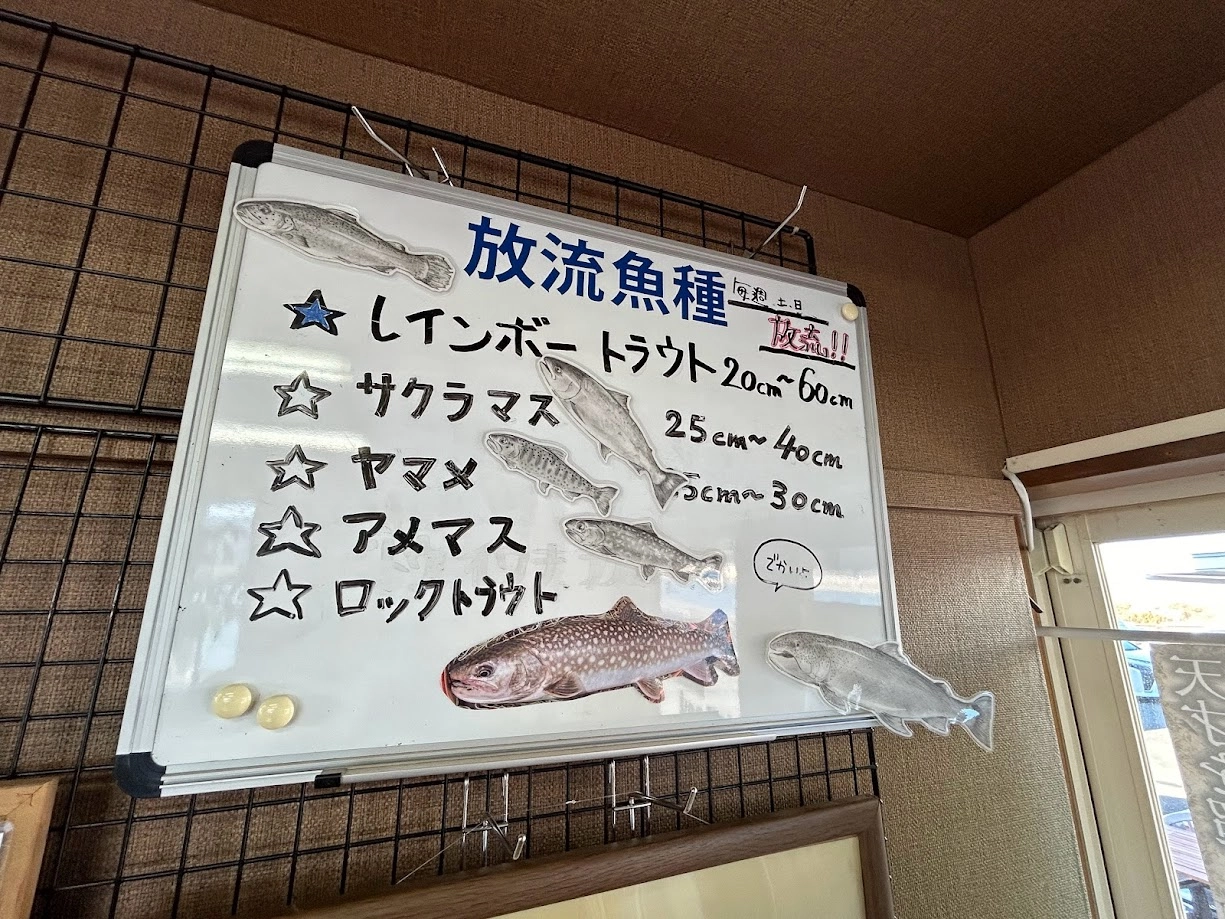 放流魚種
毎週 土.日
放流!!
☆ レインボートラウト 20cm~60cm
☆ サクラマス 25cm~40cm
☆ ヤマメ 5cm~30cm
☆ アメマス
でかいよ
☆ ロックトラウト
天せ